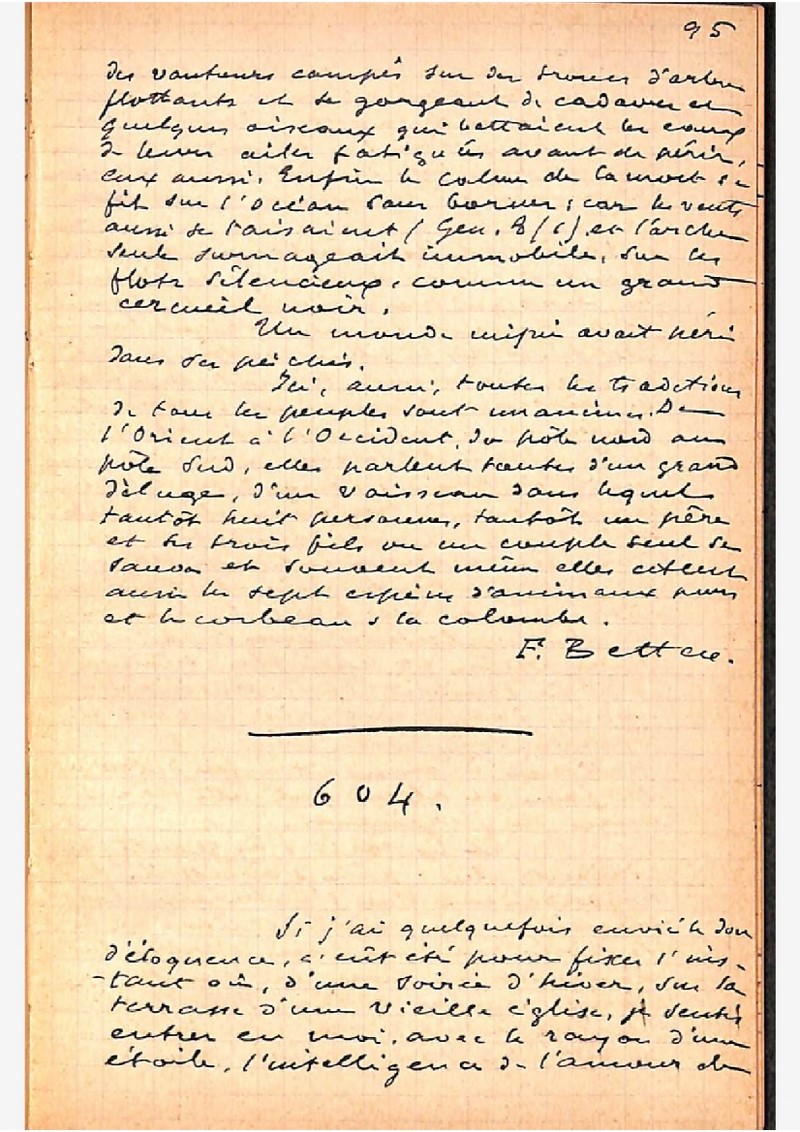 95
des vautours campés sur des troncs d'arbres
flottants et se gorgeant de cadavres et
quelques oiseaux qui battaient les eaux
de leurs ailes fatiguées avant de périr,
eux aussi. Enfin le calme de la mort se
fit sur l'Océan sans bornes; car les vents
aussi se taisaient (Gen. 8/1) et l'arche
seule surnageait immobile, sur les
flots silencieux, comme un grand
cercueil noir.
Un monde impie avait péri
dans ses péchés.
Ici, aussi, toutes les traditions
de tous les peuples sont unanimes. De
l'Orient à l'Occident, du pôle nord au
pôle sud, elles parlent toutes d'un grand
déluge, d'un vaisseau dans lequel
tantôt huit personnes, tantôt un père
et ses trois fils ou un couple seul se
sauva et souvent même elles citent
aussi les sept espèces d'animaux purs
et le corbeau & la colombe.
F. Bettex.
604.
Si j'ai quelquefois envié le don
d'éloquence, c'eût été pour fixer l'ins-
-tant où, d'une soirée d'hiver, sur la
terrasse d'une vieille église, je sentis
entrer en moi, avec le rayon d'une
étoile, l'intelligence de l'amour de